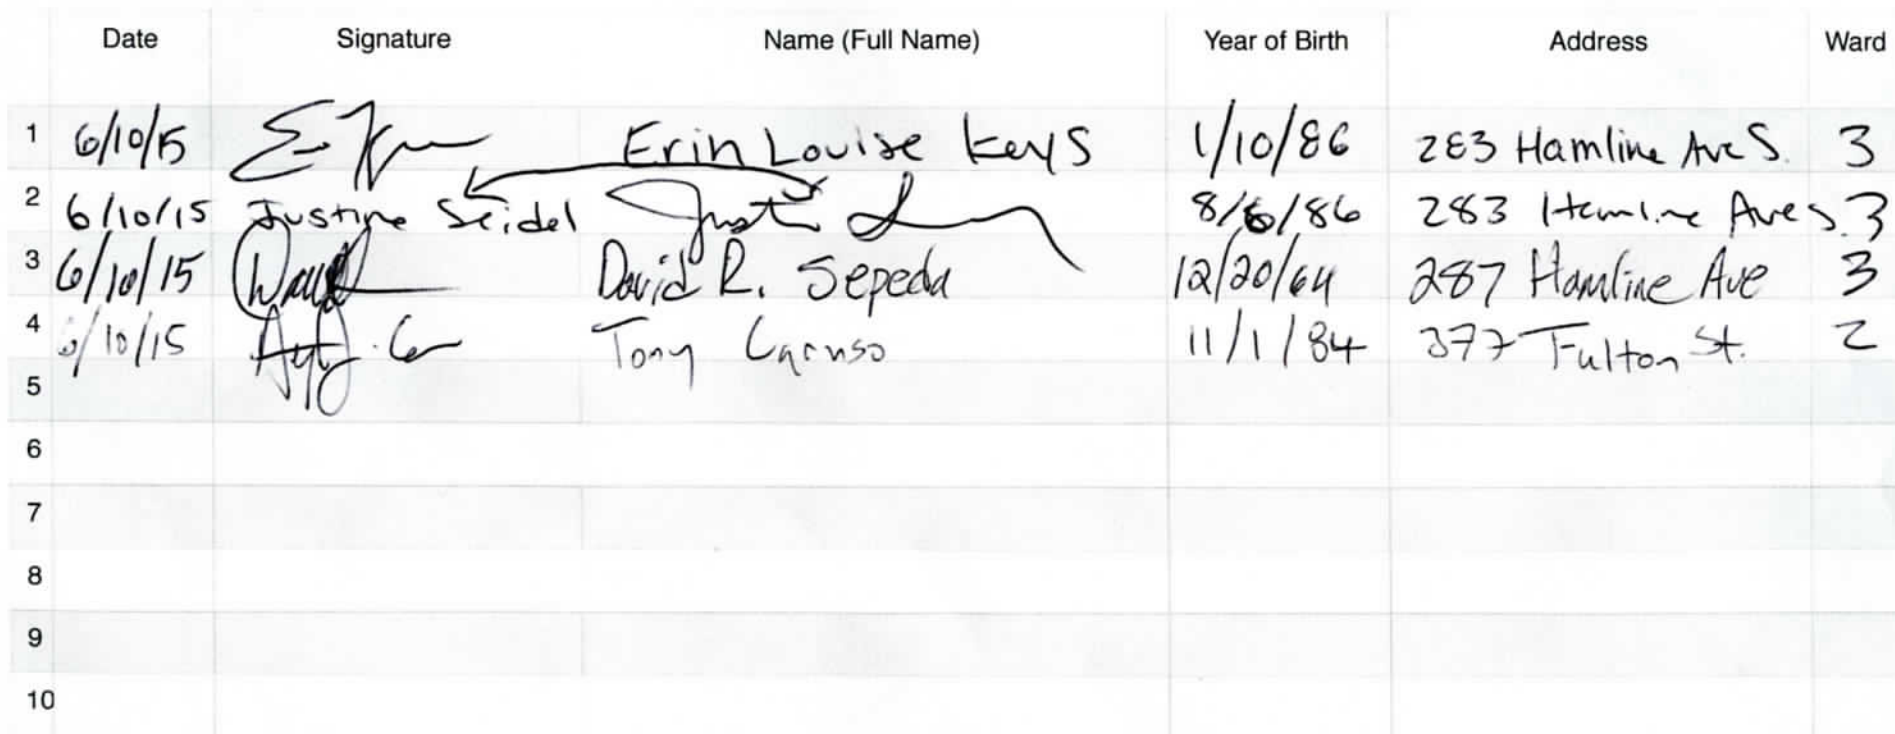 Date Signature Name (Full Name) Year of Birth Address Ward
1 6/10/15 Erin Louise Keys 1/10/86 283 Hamline Ave S. 3
2 6/10/15 Justine Seidel 8/6/86 283 Hamline Ave S. 3
3 6/10/15 David R. Sepeda 12/20/64 287 Hamline Ave 3
4 6/10/15 Tony Caruso 11/1/84 377 Fulton St. 2
5
6
7
8
9
10